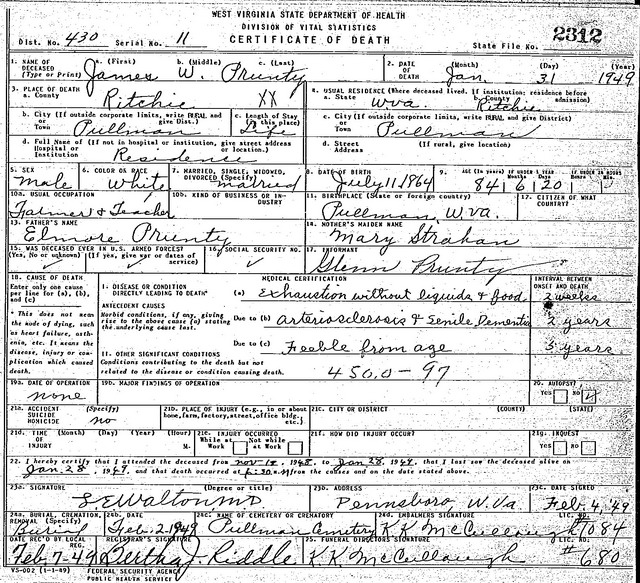 WEST VIRGINIA STATE DEPARTMENT OF HEALTH
DIVISION OF VITAL STATISTICS
Dist. No. 430 Serial No. 11 CERTIFICATE OF DEATH State File No. 2312
1. NAME OF DECEASED (Type or Print) a. (First) James b. (Middle) W. c. (Last) Prunty 2. DATE OF DEATH (Month) Jan. (Day) 31 (Year) 1949
3. PLACE OF DEATH a. County Ritchie XX 4. USUAL RESIDENCE (Where deceased lived. If institution: residence before admission) a. State W Va. b. County Ritchie
b. City (If outside corporate limits, write RURAL and give Dist.) or Town Pullman c. Length of Stay (in this place) Life c. City (If outside corporate limits, write RURAL and give District) or Town Pullman
d. Full Name of (If not in hospital or institution, give street address or location.) Hospital or Institution Residence d. Street Address (If rural, give location)
5. SEX Male 6. COLOR OR RACE White 7. MARRIED, SINGLE, WIDOWED, DIVORCED (Specify) married 8. DATE OF BIRTH July 11, 1864 9. AGE 84 6 20
10a. USUAL OCCUPATION Farmer & Teacher 10b. KIND OF BUSINESS OR INDUSTRY 11. BIRTHPLACE (State or foreign country) Pullman, W.Va. 12. CITIZEN OF WHAT COUNTRY?
13. FATHER'S NAME Elmore Prunty 14. MOTHER'S MAIDEN NAME Mary Strahan
15. WAS DECEASED EVER IN U.S. ARMED FORCES? (Yes, No or unknown) (If yes, give war or dates of service) 16. SOCIAL SECURITY NO. 17. INFORMANT Glenn Prunty
18. CAUSE OF DEATH Enter only one cause per line for (a), (b), and (c) MEDICAL CERTIFICATION INTERVAL BETWEEN ONSET AND DEATH
I. DISEASE OR CONDITION DIRECTLY LEADING TO DEATH* (a) Exhaustion without liquids & food 2 weeks
* This does not mean the mode of dying, such as heart failure, asthenia, etc. It means the disease, injury or complication which caused death.
ANTECEDENT CAUSES Morbid conditions, if any, giving rise to the above cause (a) stating the underlying cause last. Due to (b) Arteriosclerosis & Senile Dementia 2 years
Due to (c) Feeble from age 5 years
II. OTHER SIGNIFICANT CONDITIONS Conditions contributing to the death but not related to the disease or condition causing death. 450.0-97
19a. DATE OF OPERATION none 19b. MAJOR FINDINGS OF OPERATION 20. AUTOPSY? YES NO
21a. ACCIDENT SUICIDE HOMICIDE (Specify) no 21b. PLACE OF INJURY (e.g., in or about home, farm, factory, street, office bldg. etc.) 21c. CITY OR DISTRICT (COUNTY) (STATE)
21d. TIME OF INJURY (Month) (Day) (Year) (Hour) M. 21e. INJURY OCCURRED While at Work Not while at Work 21f. HOW DID INJURY OCCUR? 21g. INQUEST YES NO
22. I hereby certify that I attended the deceased from Nov-14, 1948, to Jan 28, 1949, that I last saw the deceased alive on
Jan 28, 1949, and that death occurred at 6:30 from the causes and on the date stated above.
23a. SIGNATURE (Degree or title) S E Walton MD 23b. ADDRESS Pennsboro W.Va. 23c. DATE SIGNED Feb 4, 49
24a. BURIAL, CREMATION, REMOVAL (Specify) Burial 24b. DATE Feb. 2. 1949 24c. NAME OF CEMETERY OR CREMATORY Pullman Cemetery 24d. EMBALMERS SIGNATURE K K McCullough LIC. NO. #1084
DATE REC'D BY LOCAL REG. Feb 7-49 REGISTRAR'S SIGNATURE Bertha J. Riddle 25. FUNERAL DIRECTORS SIGNATURE K. K. McCullaugh LIC. NO. #680
VS-002 (1-1-49) FEDERAL SECURITY AGENCY
PUBLIC HEALTH SERVICE